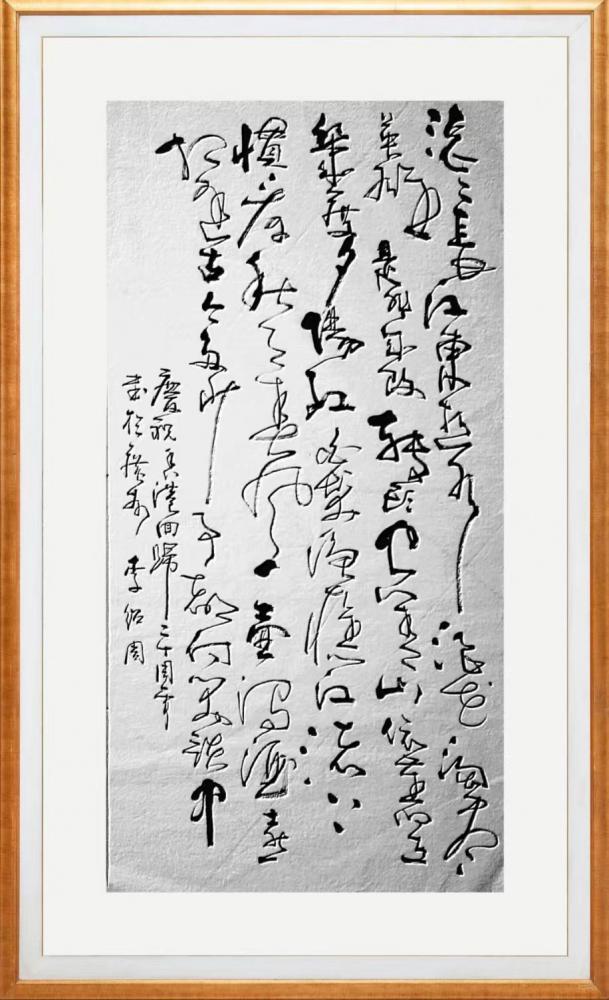 滚滚长江東逝水浪花淘尽
英雄是非成败转头空青山依旧在
几度夕阳红白发渔樵江渚上
惯看秋月春风一壶浊酒喜
相逢古今多少事都付笑谈中
慶祝香港回歸二十周年
书於 李绍周